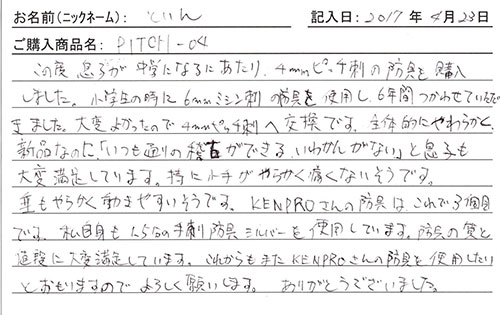 お名前(ニックネーム): といん 記入日: 2017年 4月23日
ご購入商品名: PITCH-04
この度 息子が 中学になるにあたり、4mmピッチ刺の防具を購入
しました。小学生の時に 6mmミシン刺の防具を使用し、6年間つかわせていただ
きました。大変よかったので4mmピッチ刺へ交換です。全体的にやわらかく、
新品なのに、「いつも通りの稽古ができる、いわかんがない」と息子も
大変満足しています。特に小手がやらかく痛くないそうです。
垂もやらかく動きやすいそうです。KENPROさんの防具はこれで3個目
です。私自身も1.5分の手刺防具シルバーを使用しています。防具の質と
値段に大変満足しています。これからもまたKENPROさんの防具を使用したい
とおもいますのでよろしく願いします。 ありがとうございました。